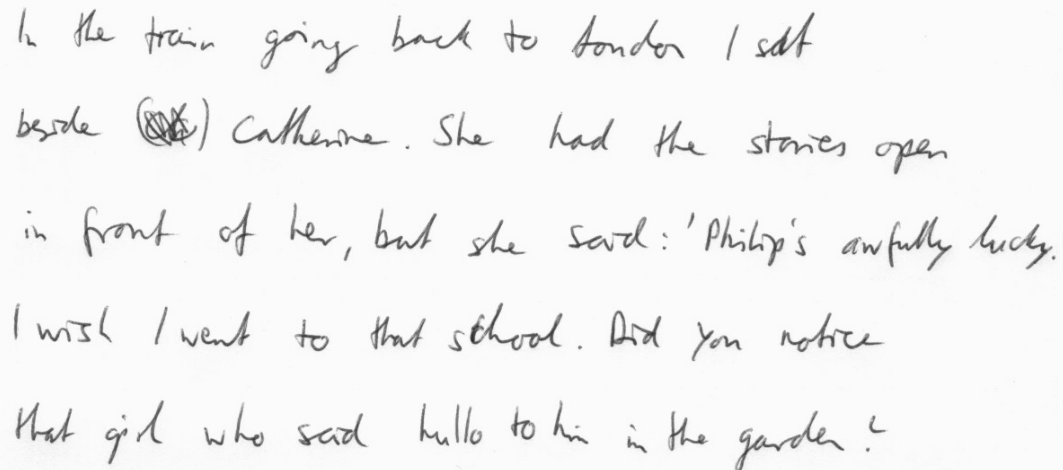 In the train going back to London I sat
beside Catherine. She had the stories open
in front of her, but she said: 'Philip's awfully lucky.
I wish I went to that school. Did you notice
that girl who said hullo to him in the garden?